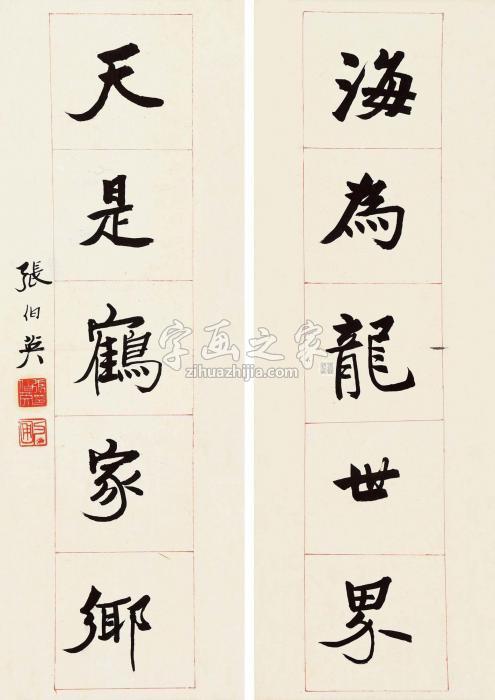 海為龍世界
天是鶴家鄉
張伯英
字画之家
zihuazhijia.com